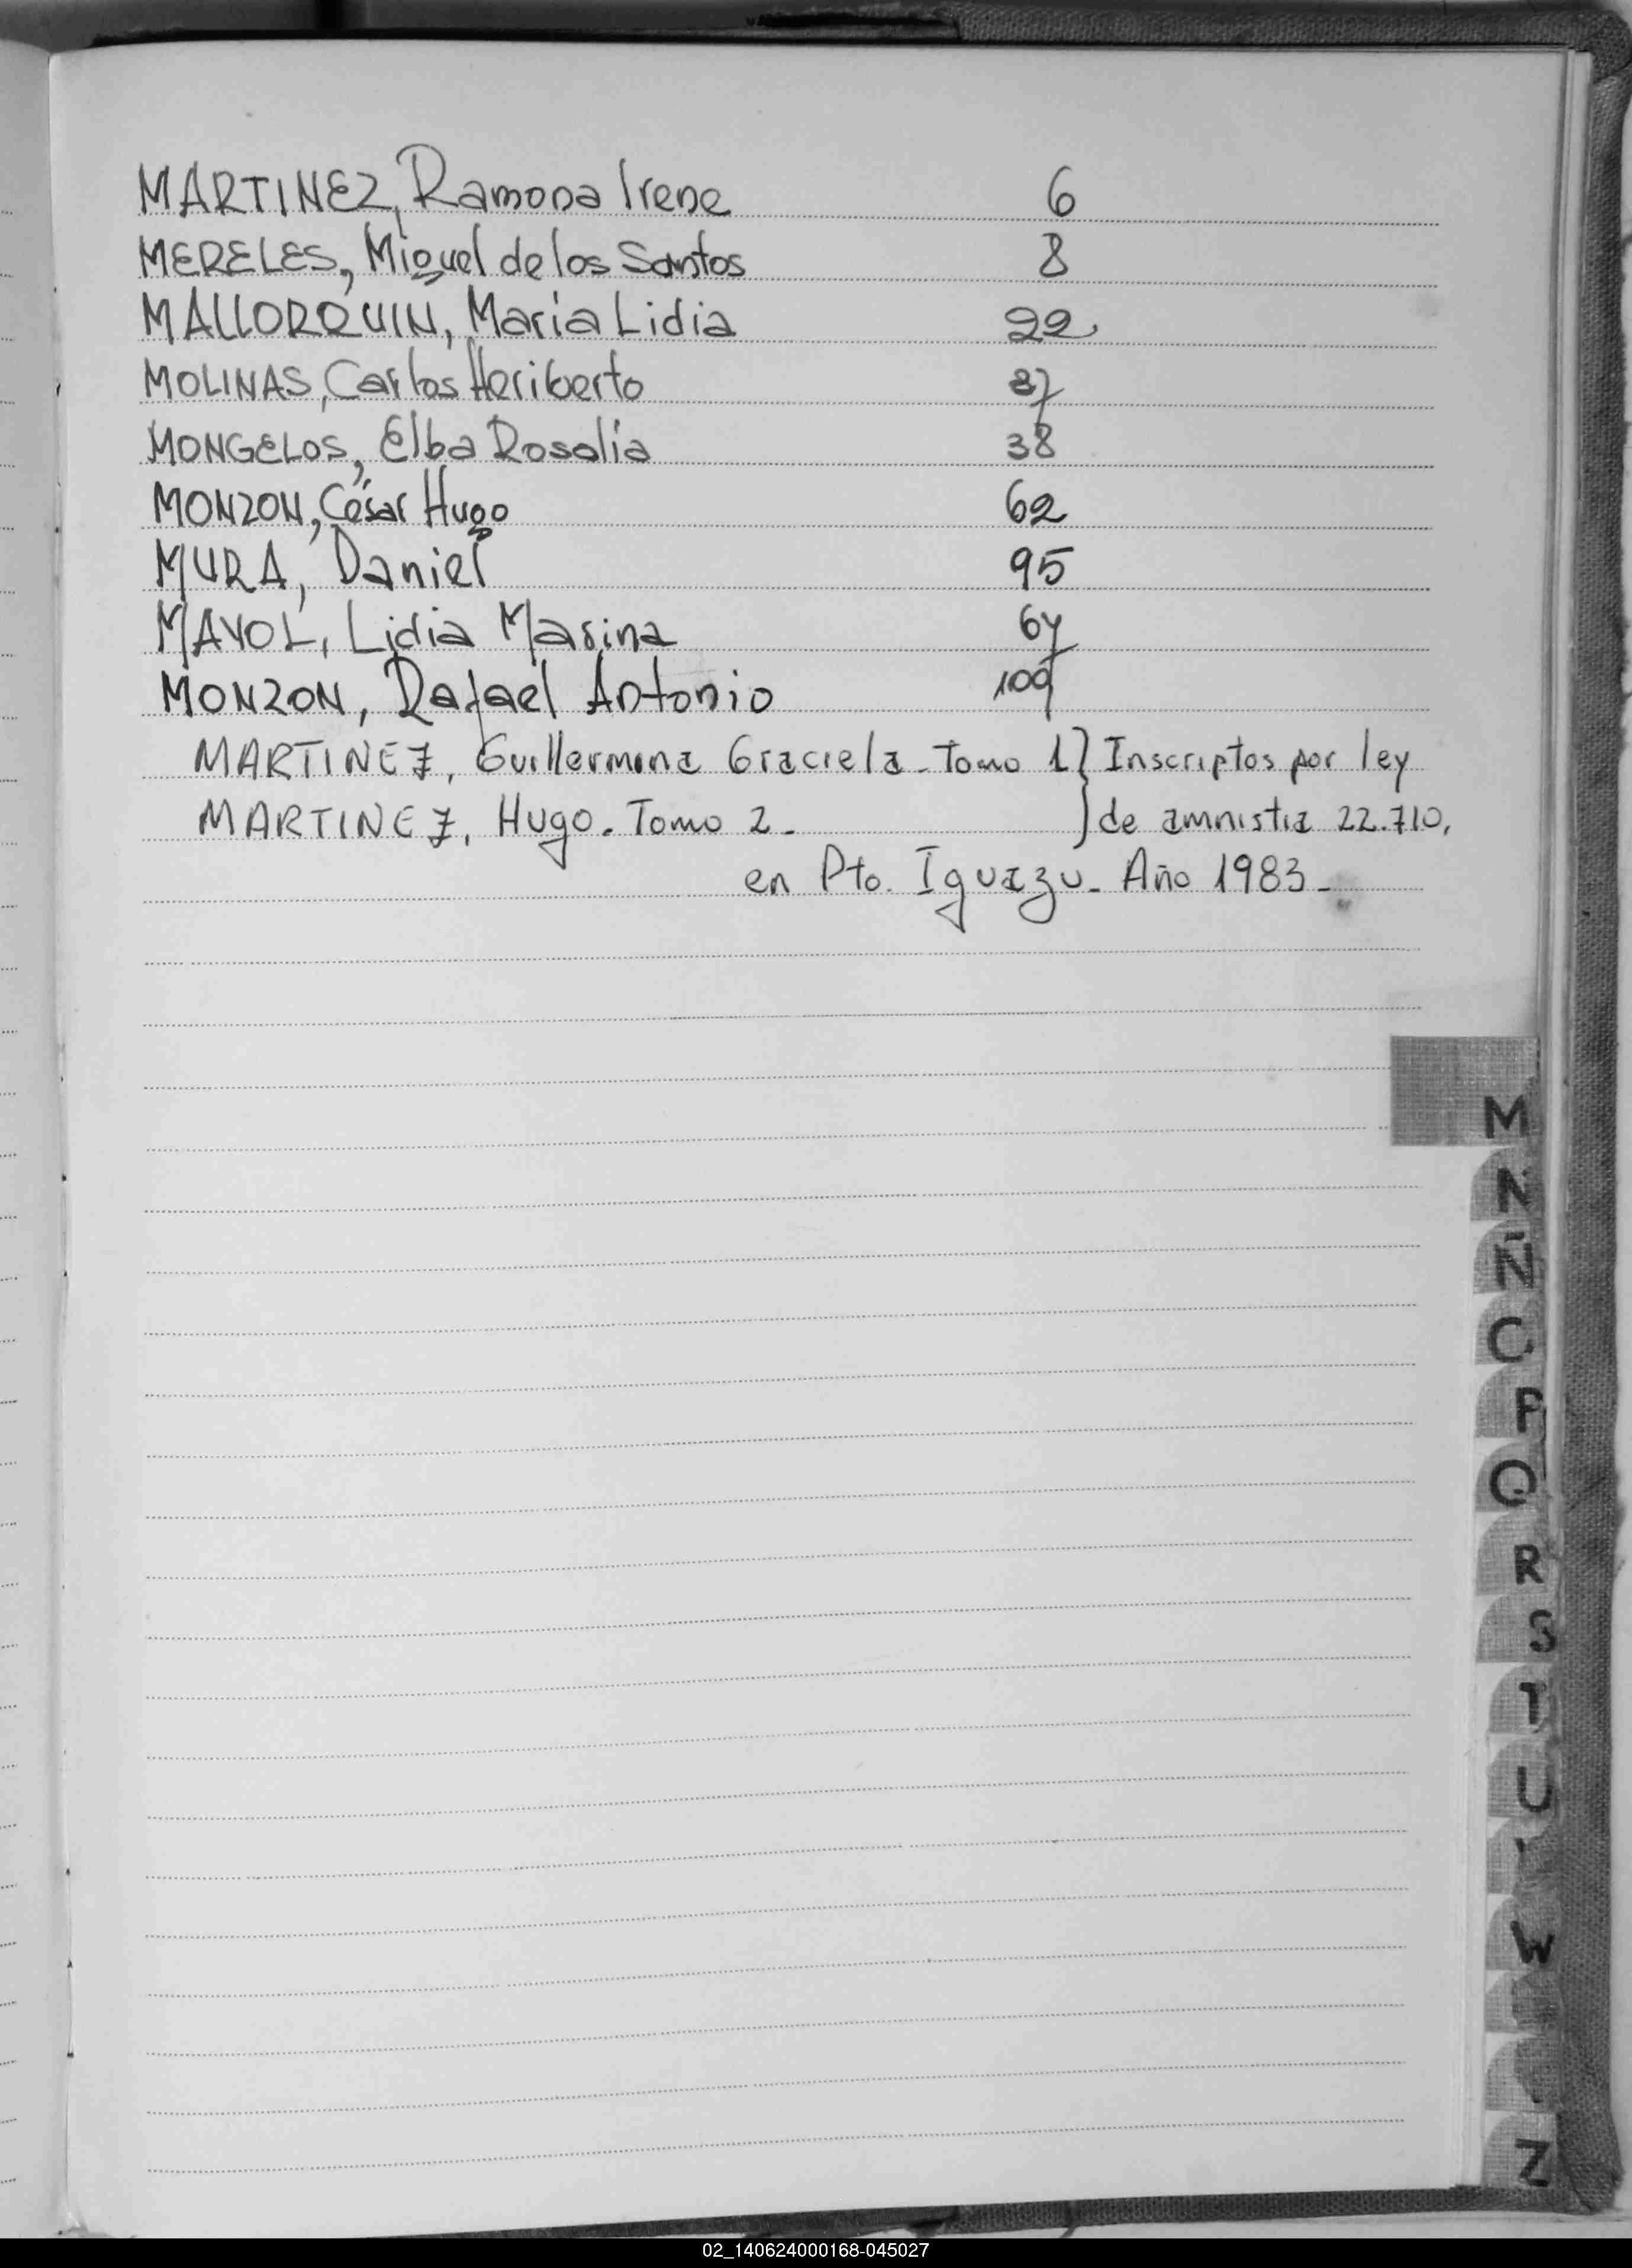 MARTINEZ, Ramona Irene 6
MERELES, Miguel de los Santos 8
MALLORQUIN, Maria Lidia 22
MOLINAS, Carlos Heriberto 37
MONGELOS, Elba Rosalia 38
MONZON, César Hugo 62
MURA, Daniel 95
MAYOL, Lidia Marina
MONZON, Rafael Antonio 109
MARTINEZ, Guillermina Graciela - Tomo 1 } Inscriptos por ley
MARTINEZ, Hugo. Tomo 2 - } de amnistia 22.710,
en Pto. Iguazu - Año 1983 -
M
N
Ñ
P
Q
R
S
T
U
W
Z
02_140624000168-045027